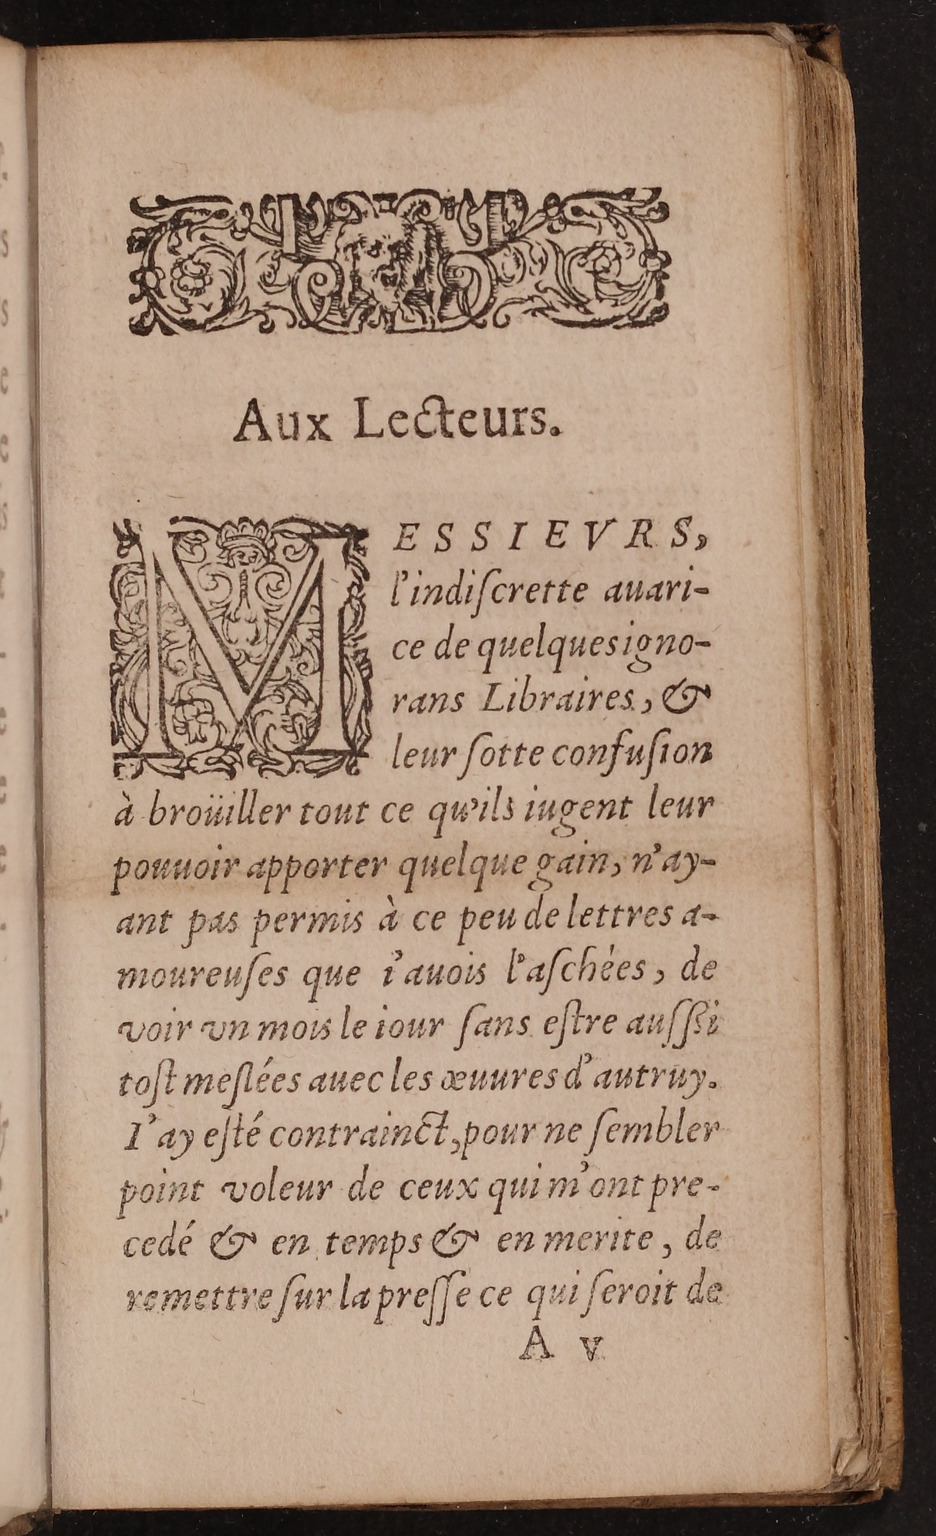 Aux Lecteurs.
MESSIEVRS,
l'indiſcrette auari-
ce de quelques igno-
rans Libraires, &
leur ſotte confuſion
à broüiller tout ce qu'ils iugent leur
pouuoir apporter quelque gain, n'ay-
ant pas permis à ce peu de lettres a-
moureuſes que i'auois laſchées, de
voir vn mois le iour ſans eſtre auſſi
toſt meſlées auec les œuures d'autruy.
I'ay eſté contrainct, pour ne ſembler
point voleur de ceux qui m'ont pre-
cedé & en temps & en merite, de
remettre ſur la preſſe ce qui ſeroit de
A v